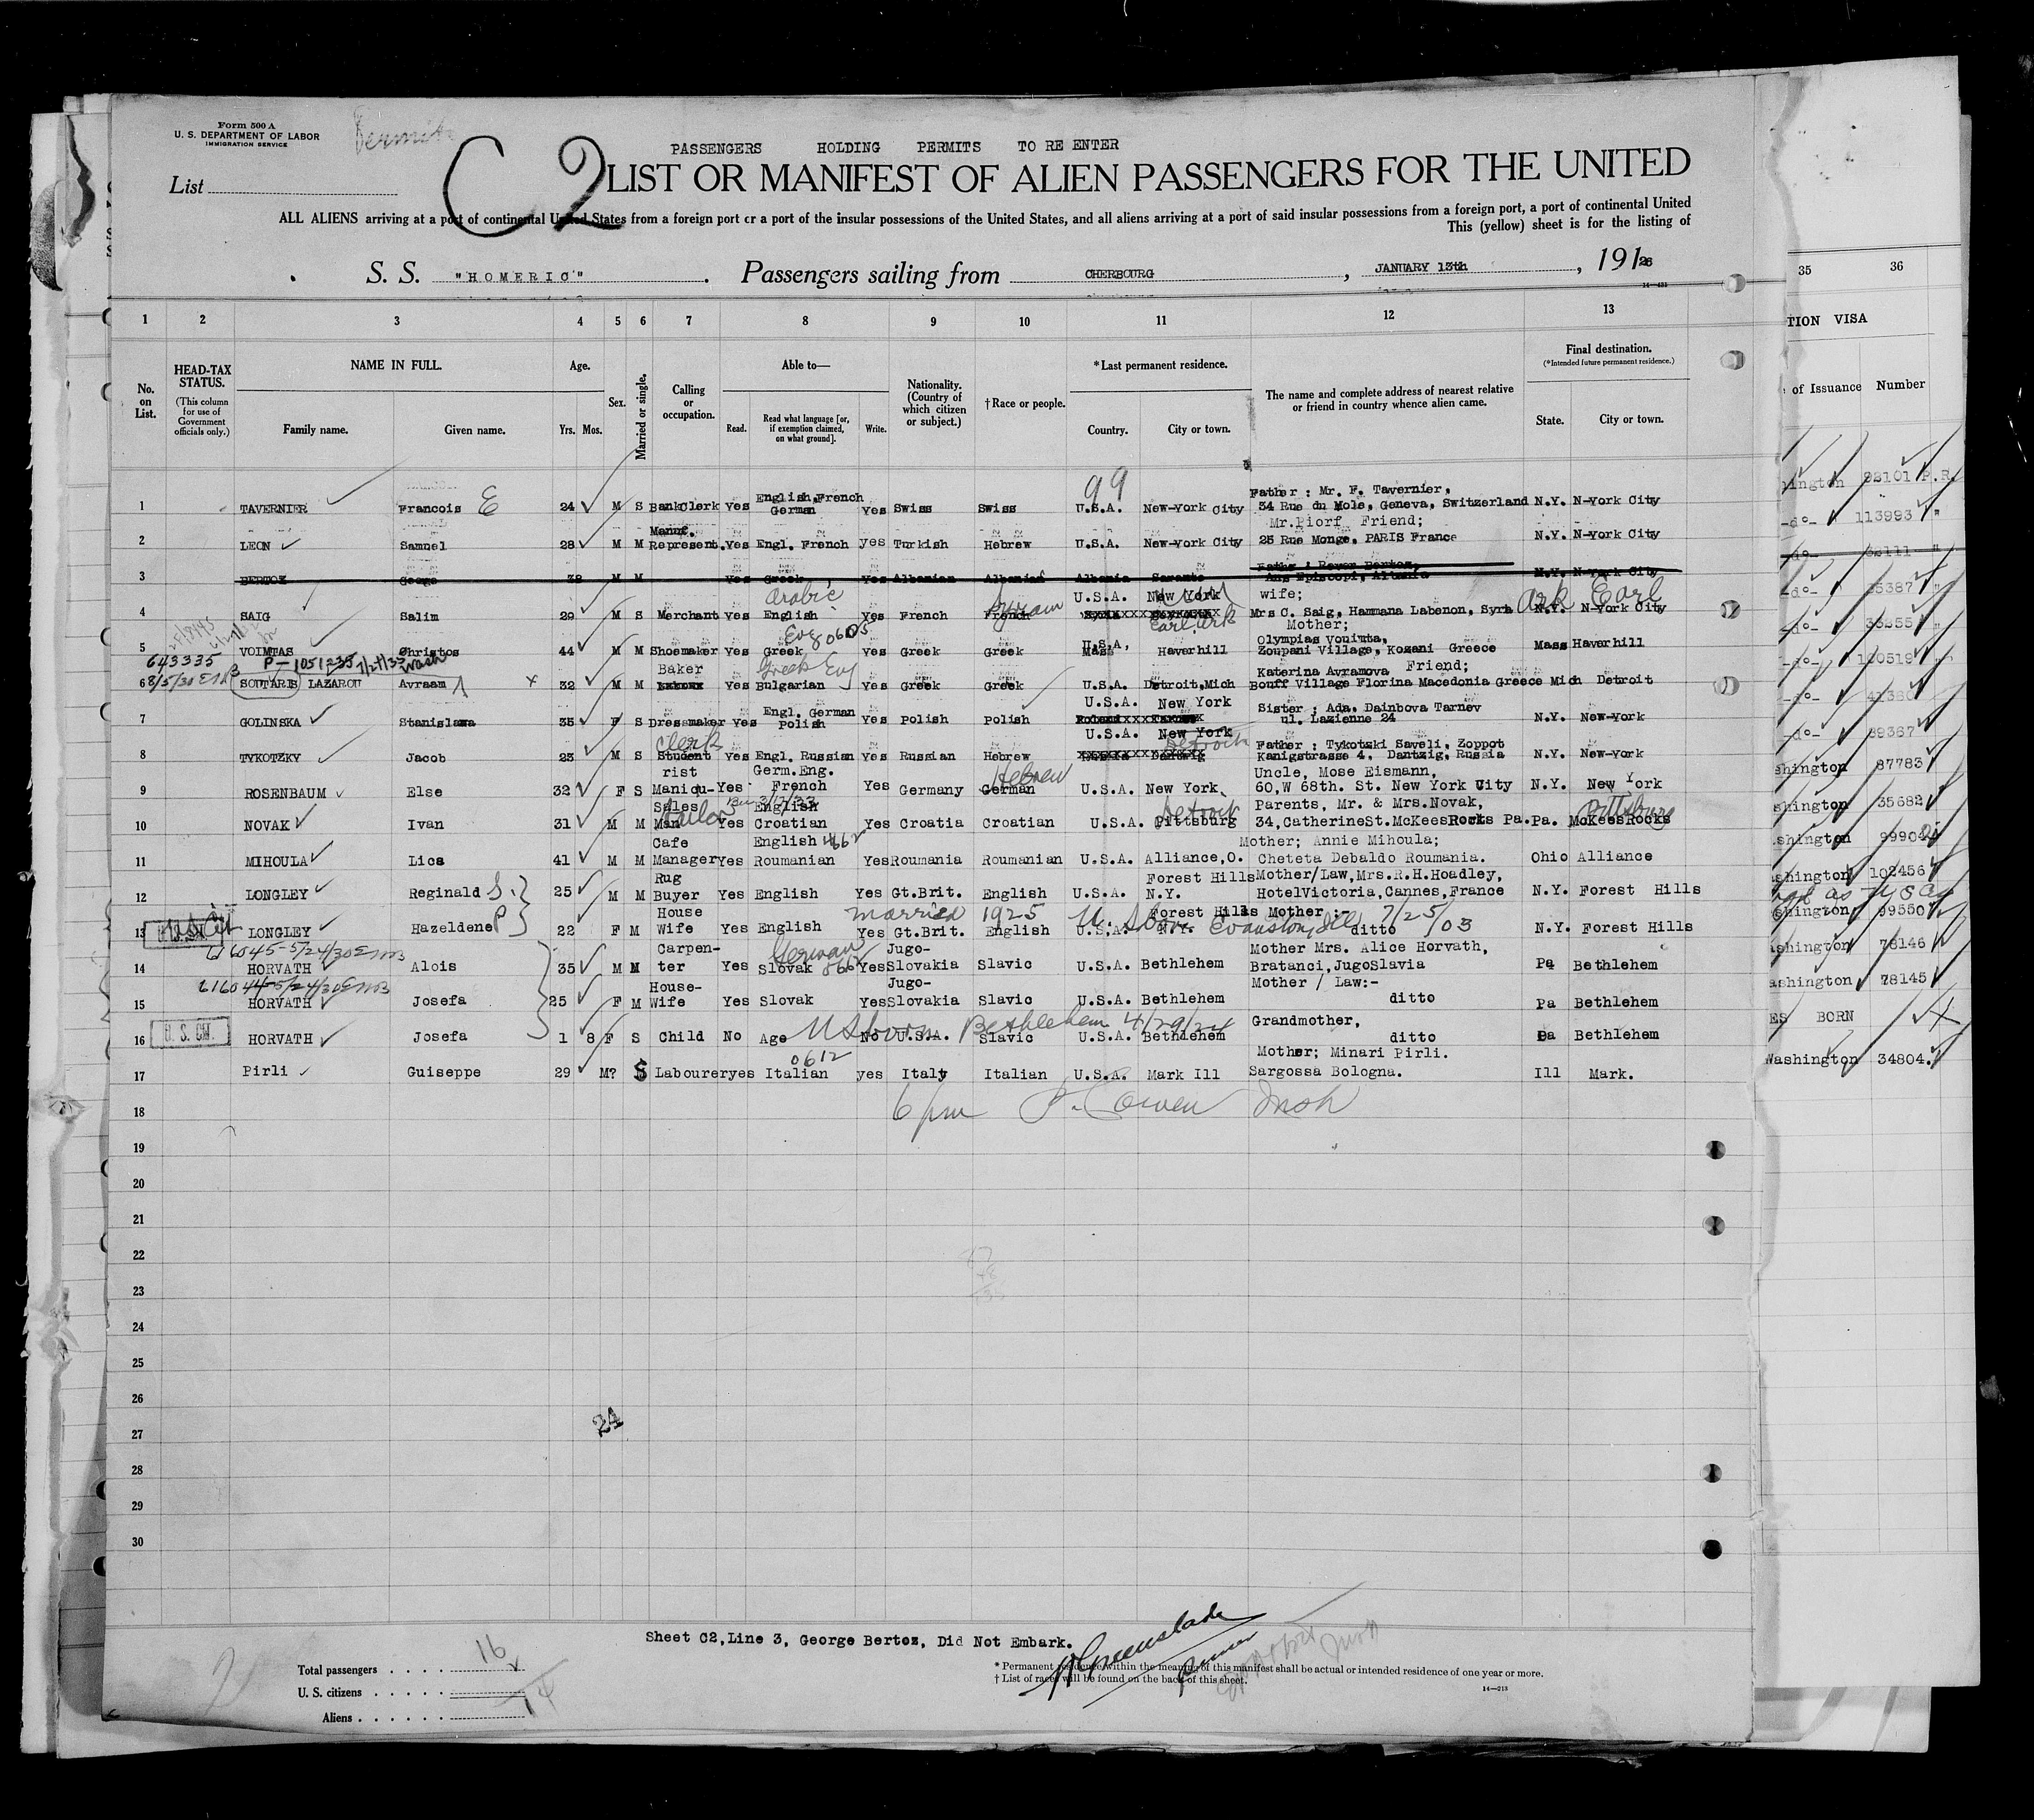 Form 500 A
U. S. DEPARTMENT OF LABOR
IMMIGRATION SERVICE
Permits
C2
List
PASSENGERS HOLDING PERMITS TO RE ENTER
LIST OR MANIFEST OF ALIEN PASSENGERS FOR THE UNITED
ALL ALIENS arriving at a port of continental United States from a foreign port or a port of the insular possessions of the United States, and all aliens arriving at a port of said insular possessions from a foreign port, a port of continental United
This (yellow) sheet is for the listing of
S. S. "HOMERIC". Passengers sailing from CHERBOURG, JANUARY 13th, 1926
14—431
35 36
TION VISA
e of Issuance Number
1 2 3 4 5 6 7 8 9 10 11 12 13
No. on List.
HEAD-TAX STATUS.
(This column for use of Government officials only.)
NAME IN FULL.
Family name. Given name.
Age.
Yrs. Mos.
Sex.
Married or single.
Calling or occupation.
Able to—
Read. Read what language [or, if exemption claimed, on what ground]. Write.
Nationality. (Country of which citizen or subject.)
†Race or people.
*Last permanent residence.
Country. City or town.
The name and complete address of nearest relative or friend in country whence alien came.
Final destination.
(*Intended future permanent residence.)
State. City or town.
99
1 TAVERNIER Francois E 24 M S BankClerk Yes English, French German Yes Swiss Swiss U.S.A. New-York City Father : Mr. F. Tavernier, 34 Rue du Mole, Geneva, Switzerland N.Y. N-York City
2 LEON Samuel 28 M M Manuf. Represent. Yes Engl. French yes Turkish Hebrew U.S.A. New-York City Mr. Piorf Friend; 25 Rue Monge, PARIS France N.Y. N-York City
3 BERTOZ George 38 M M Yes Greek, Yes Albanian Albanian Albania Saranto N.Y. N-York City
4 SAIG Salim 29 M S Merchant Yes Arabic English Yes French French Syrian U.S.A. New York Earl Ark wife; Mrs C. Saig, Hammana Labenon, Syra N.Y. N-York City Ark Earl
5 VOIMTAS Christos 44 M M Shoemaker Yes Greek Yes Greek Greek U.S.A. Mass Haverhill Mother; Olympias Vouimta, Zoupani Village, Kozani Greece Mass Haverhill
643335 P-1051235 7/27/33 Wash
6 8/5/30 SOUTARIS LAZAROU Avraam x 32 M M Baker Yes Bulgarian Greek Eng Yes Greek Greek U.S.A. Detroit, Mich Katerina Avramova Friend; Bouff Village Florina Macedonia Greece Mich Detroit
7 GOLINSKA Stanislawa 35 F S Dressmaker Yes Engl. German Polish Yes Polish Polish U.S.A. New York Sister : Ada. Dainbova Tarnev ul. Lazienne 24 N.Y. New-York
8 TYKOTZKY Jacob 23 M S Clerk Student Yes Engl. Russian Yes Russian Hebrew U.S.A. New York Detroit Dantwig Father : Tykotzki Saveli, Zoppot Kanigstrasse 4, Dantzig, Russia N.Y. New-York
9 ROSENBAUM Else 32 F S Manicurist Yes Germ. Eng. French Yes Germany German Hebrew U.S.A. New York Uncle, Mose Eismann, 60, W 68th. St. New York City N.Y. New York
10 NOVAK Ivan 31 M M Sales Man Tailor Yes English Croatian Yes Croatia Croatian U.S.A. Pittsburg Detroit Parents, Mr. & Mrs. Novak, 34, Catherine St. McKees Rocks Pa. Pa. McKees Rocks Pittsburg
11 MIHOULA Lica 41 M M Cafe Manager Yes English Roumanian Yes Roumania Roumanian U.S.A. Alliance, O. Mother; Annie Mihoula; Cheteta Debaldo Roumania. Ohio Alliance
12 LONGLEY Reginald S. 25 M M Rug Buyer Yes English Yes Gt. Brit. English U.S.A. Forest Hills N.Y. Mother/Law, Mrs. R. H. Hoadley, Hotel Victoria, Cannes, France N.Y. Forest Hills
married 1925 U.S. born Evanston, Ill 7/25/03
13 LONGLEY Hazeldene P 22 F M House Wife Yes English Yes Gt. Brit. English U.S.A. Forest Hills N.Y. Mother :- ditto N.Y. Forest Hills
616045-5/24/30
14 HORVATH Alois 35 M M Carpenter Yes German Slovak Yes Jugo-Slovakia Slavic U.S.A. Bethlehem Mother Mrs. Alice Horvath, Bratanci, JugoSlavia Pa Bethlehem
616044-5/24/30
15 HORVATH Josefa 25 F M House-Wife Yes Slovak Yes Jugo-Slovakia Slavic U.S.A. Bethlehem Mother / Law:- ditto Pa Bethlehem
U S born Bethlehem 4/29/24
16 U. S. CIT. HORVATH Josefa 1 8 F S Child No Age No U.S.A. Slavic U.S.A. Bethlehem Grandmother, ditto Pa Bethlehem
0612
17 Pirli Guiseppe 29 M? S Labourer yes Italian yes Italy Italian U.S.A. Mark Ill Mother; Minari Pirli. Sargossa Bologna. Ill Mark.
18 6 pm P. Cowen Insp
19
20
21
22
23
24
25
26
27
28
29
30
24
hington 98101 P.R.
-do- 113993 "
-do- "
-do- 35387 "
-do- "
-do-
-do-
-do- 39367 "
shington 87783
shington 35682
shington 9990
shington 102456
shington 99550
ashington 78146
ashington 78145
ES BORN
Washington 34804.
Sheet C2, Line 3, George Bertoz, Did Not Embark.
Total passengers 16
U. S. citizens
Aliens 14
Greenslade
Purser
* Permanent residence within the meaning of this manifest shall be actual or intended residence of one year or more.
† List of races will be found on the back of this sheet.
14—213